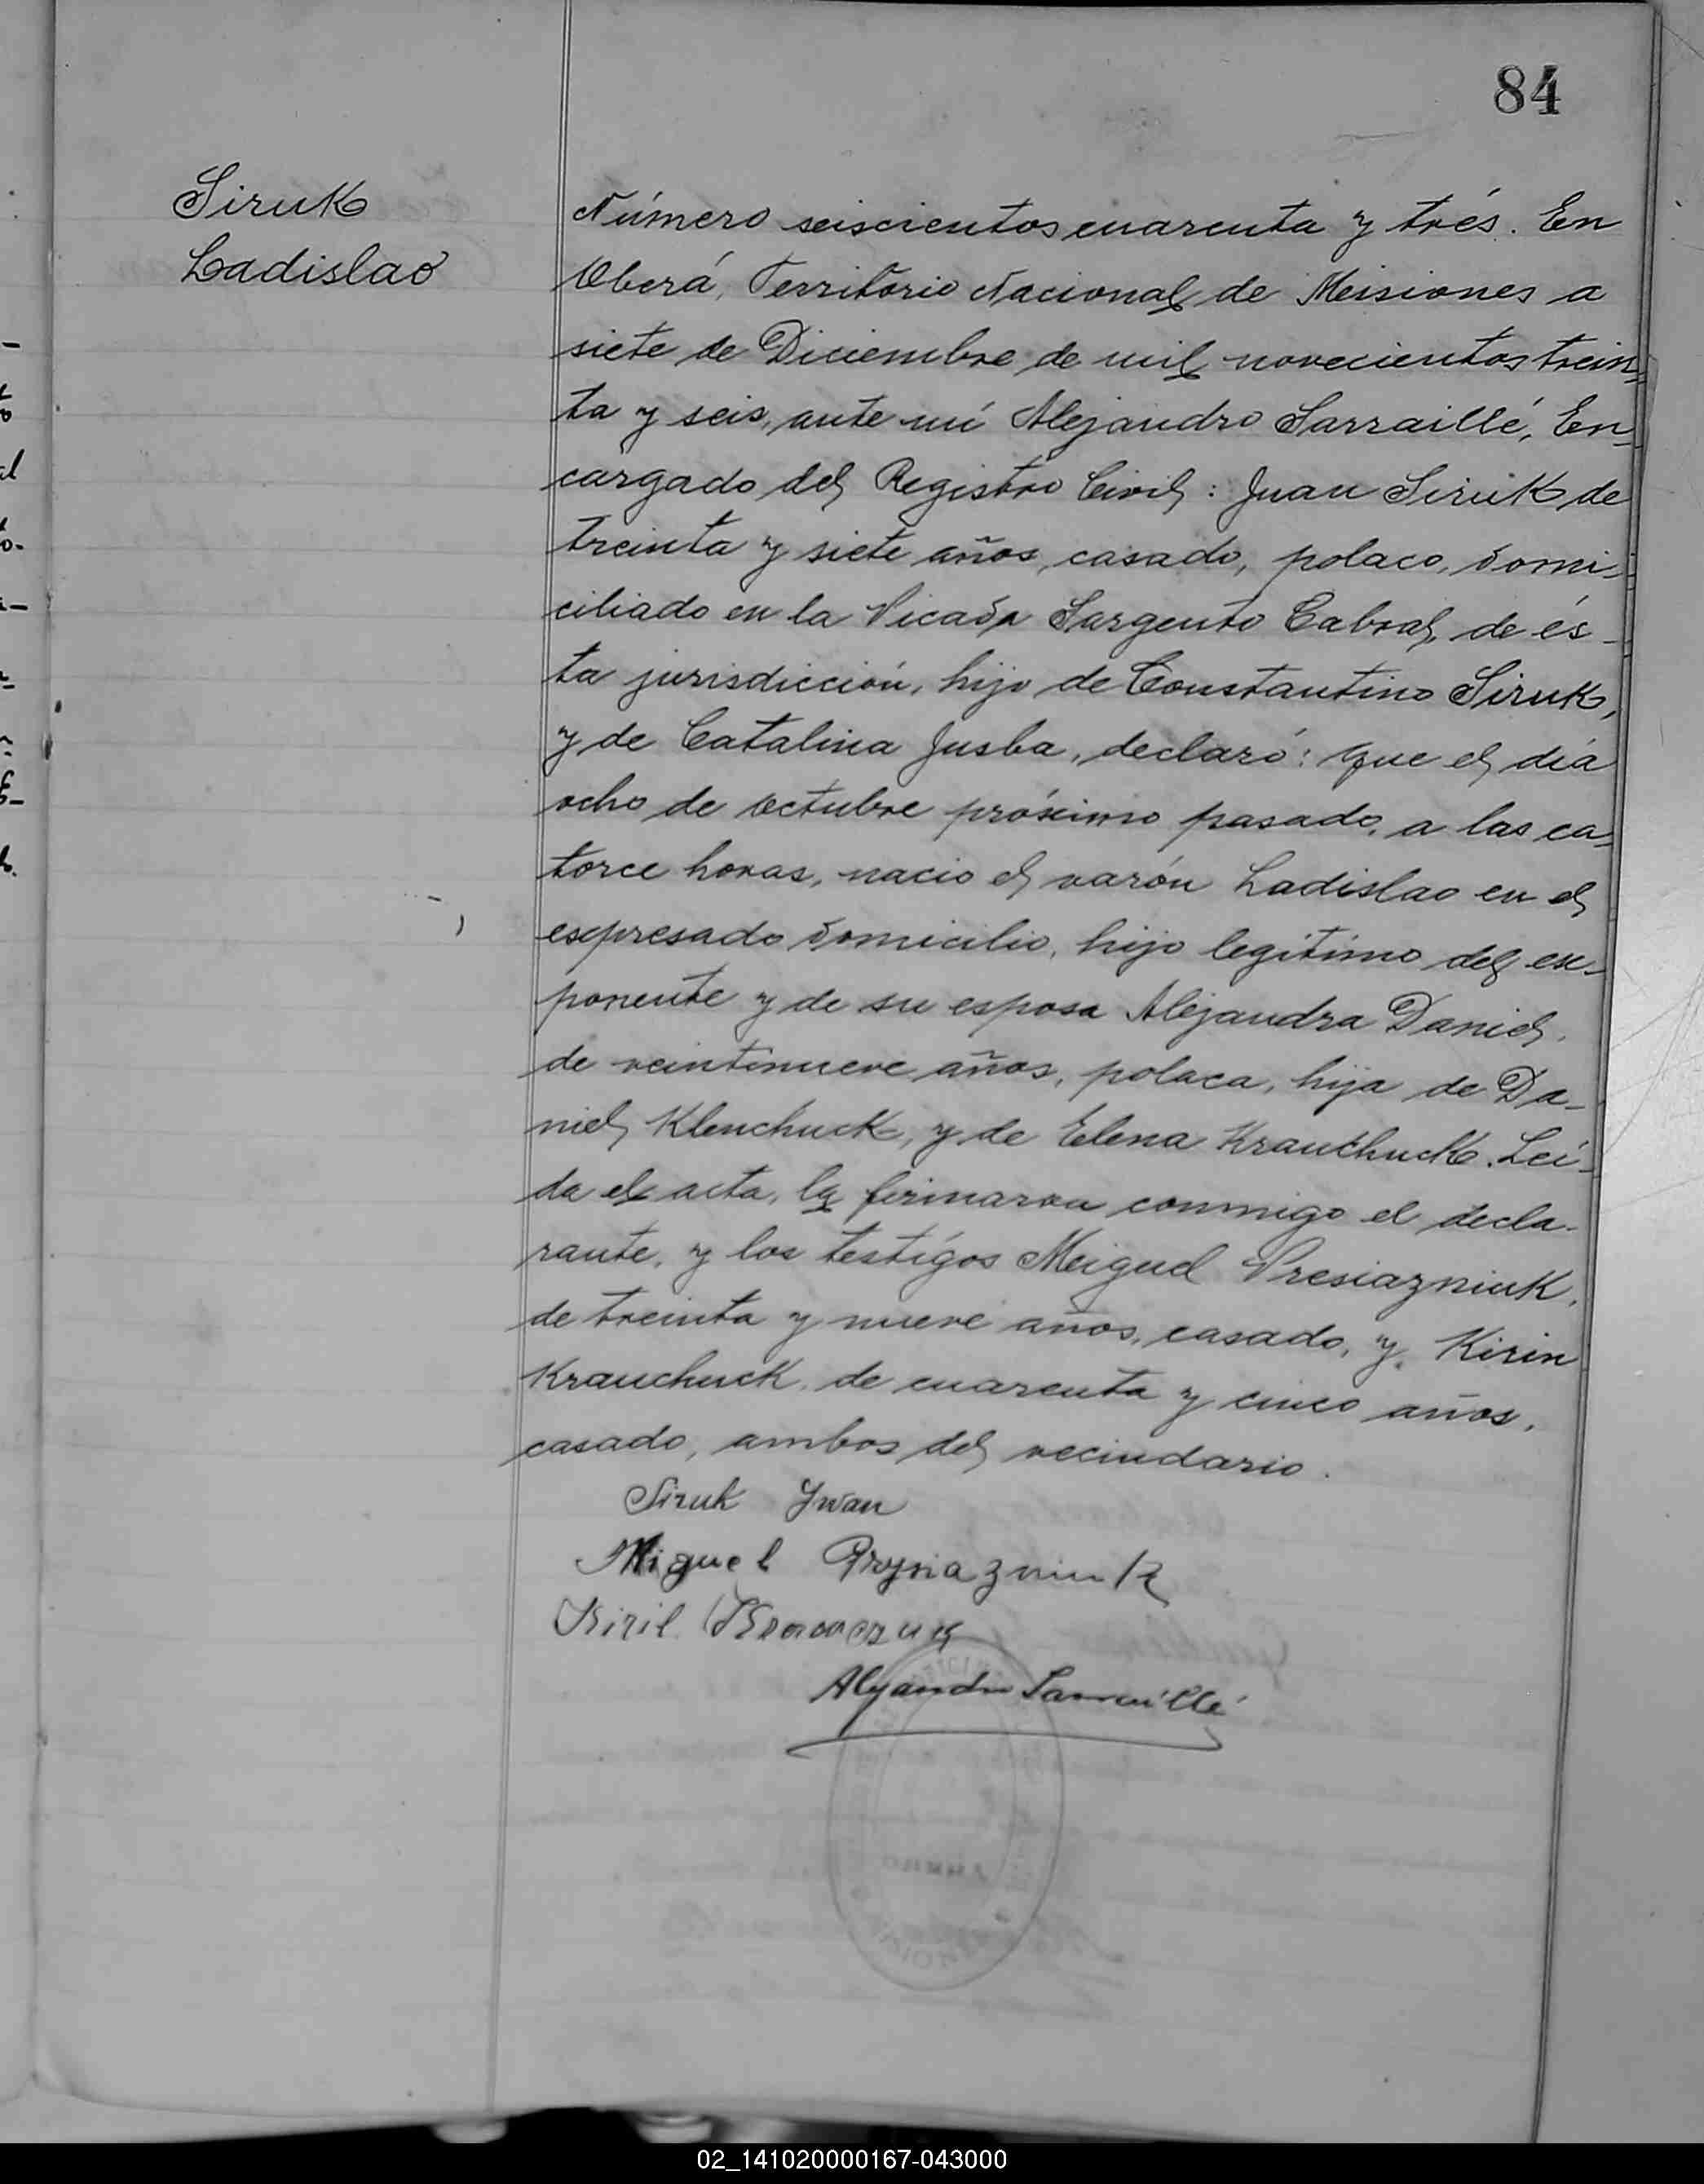 84
Siruk
Ladislao
Número seiscientos cuarenta y trés. En
Oberá, Territorio Nacional de Misiones a
siete de Diciembre de mil novecientos trein-
ta y seis, ante mí Alejandro Sarraillé, En-
cargado del Registro Civil: Juan Siruk de
treinta y siete años, casado, polaco, domi-
ciliado en la Picada Sargento Cabral, de és-
ta jurisdicción, hijo de Constantino Siruk,
y de Catalina Jusba, declaró: que el día
ocho de octubre próximo pasado, a las ca-
torce horas, nacio el varón Ladislao en el
expresado domicilio, hijo legítimo del ex-
ponente y de su esposa Alejandra Daniel,
de veintinueve años, polaca, hija de Da-
niel Klenchuck, y de Elena Krauchuck. Leí-
da el acta, la firmaron conmigo el decla-
rante, y los testigos Miguel Presiazniuk,
de treinta y nueve años, casado, y Kirin
Krauchuck, de cuarenta y cinco años,
casado, ambos del vecindario.
Siruk Iwan
Miguel
Kiril
Alejandro Sarraillé
02_141020000167-043000